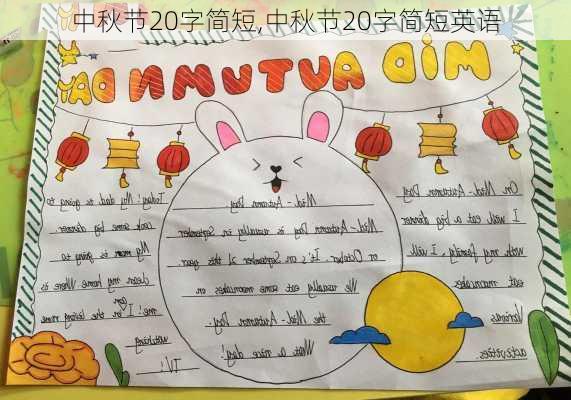 中秋节20字简短,中秋节20字简短英语
MID AUTUMN DAY
On Mid-Autumn Day
I will eat a big dinner
with my family. I will
eat mooncakes
Various
activities.
Mid-Autumn Day
Mid-Autumn Day is usually in September
or October. It's on September 21 this year
We usually eat some mooncakes on
the Mid-Autumn Day.
What a nice day!
Today! My dad is going to
cook some big dinner
My mom is going to
clean my home. Where is
me? I'm in the living room
watching
TV!